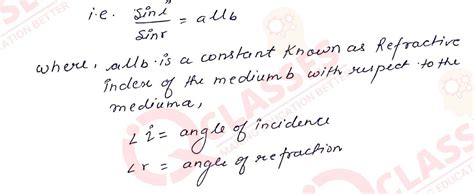 i.e. sin i / sin r = aμb
where, aμb is a constant known as Refractive
index of the medium b with respect to the
medium a,
∠i = angle of incidence
∠r = angle of refraction
CLASSES